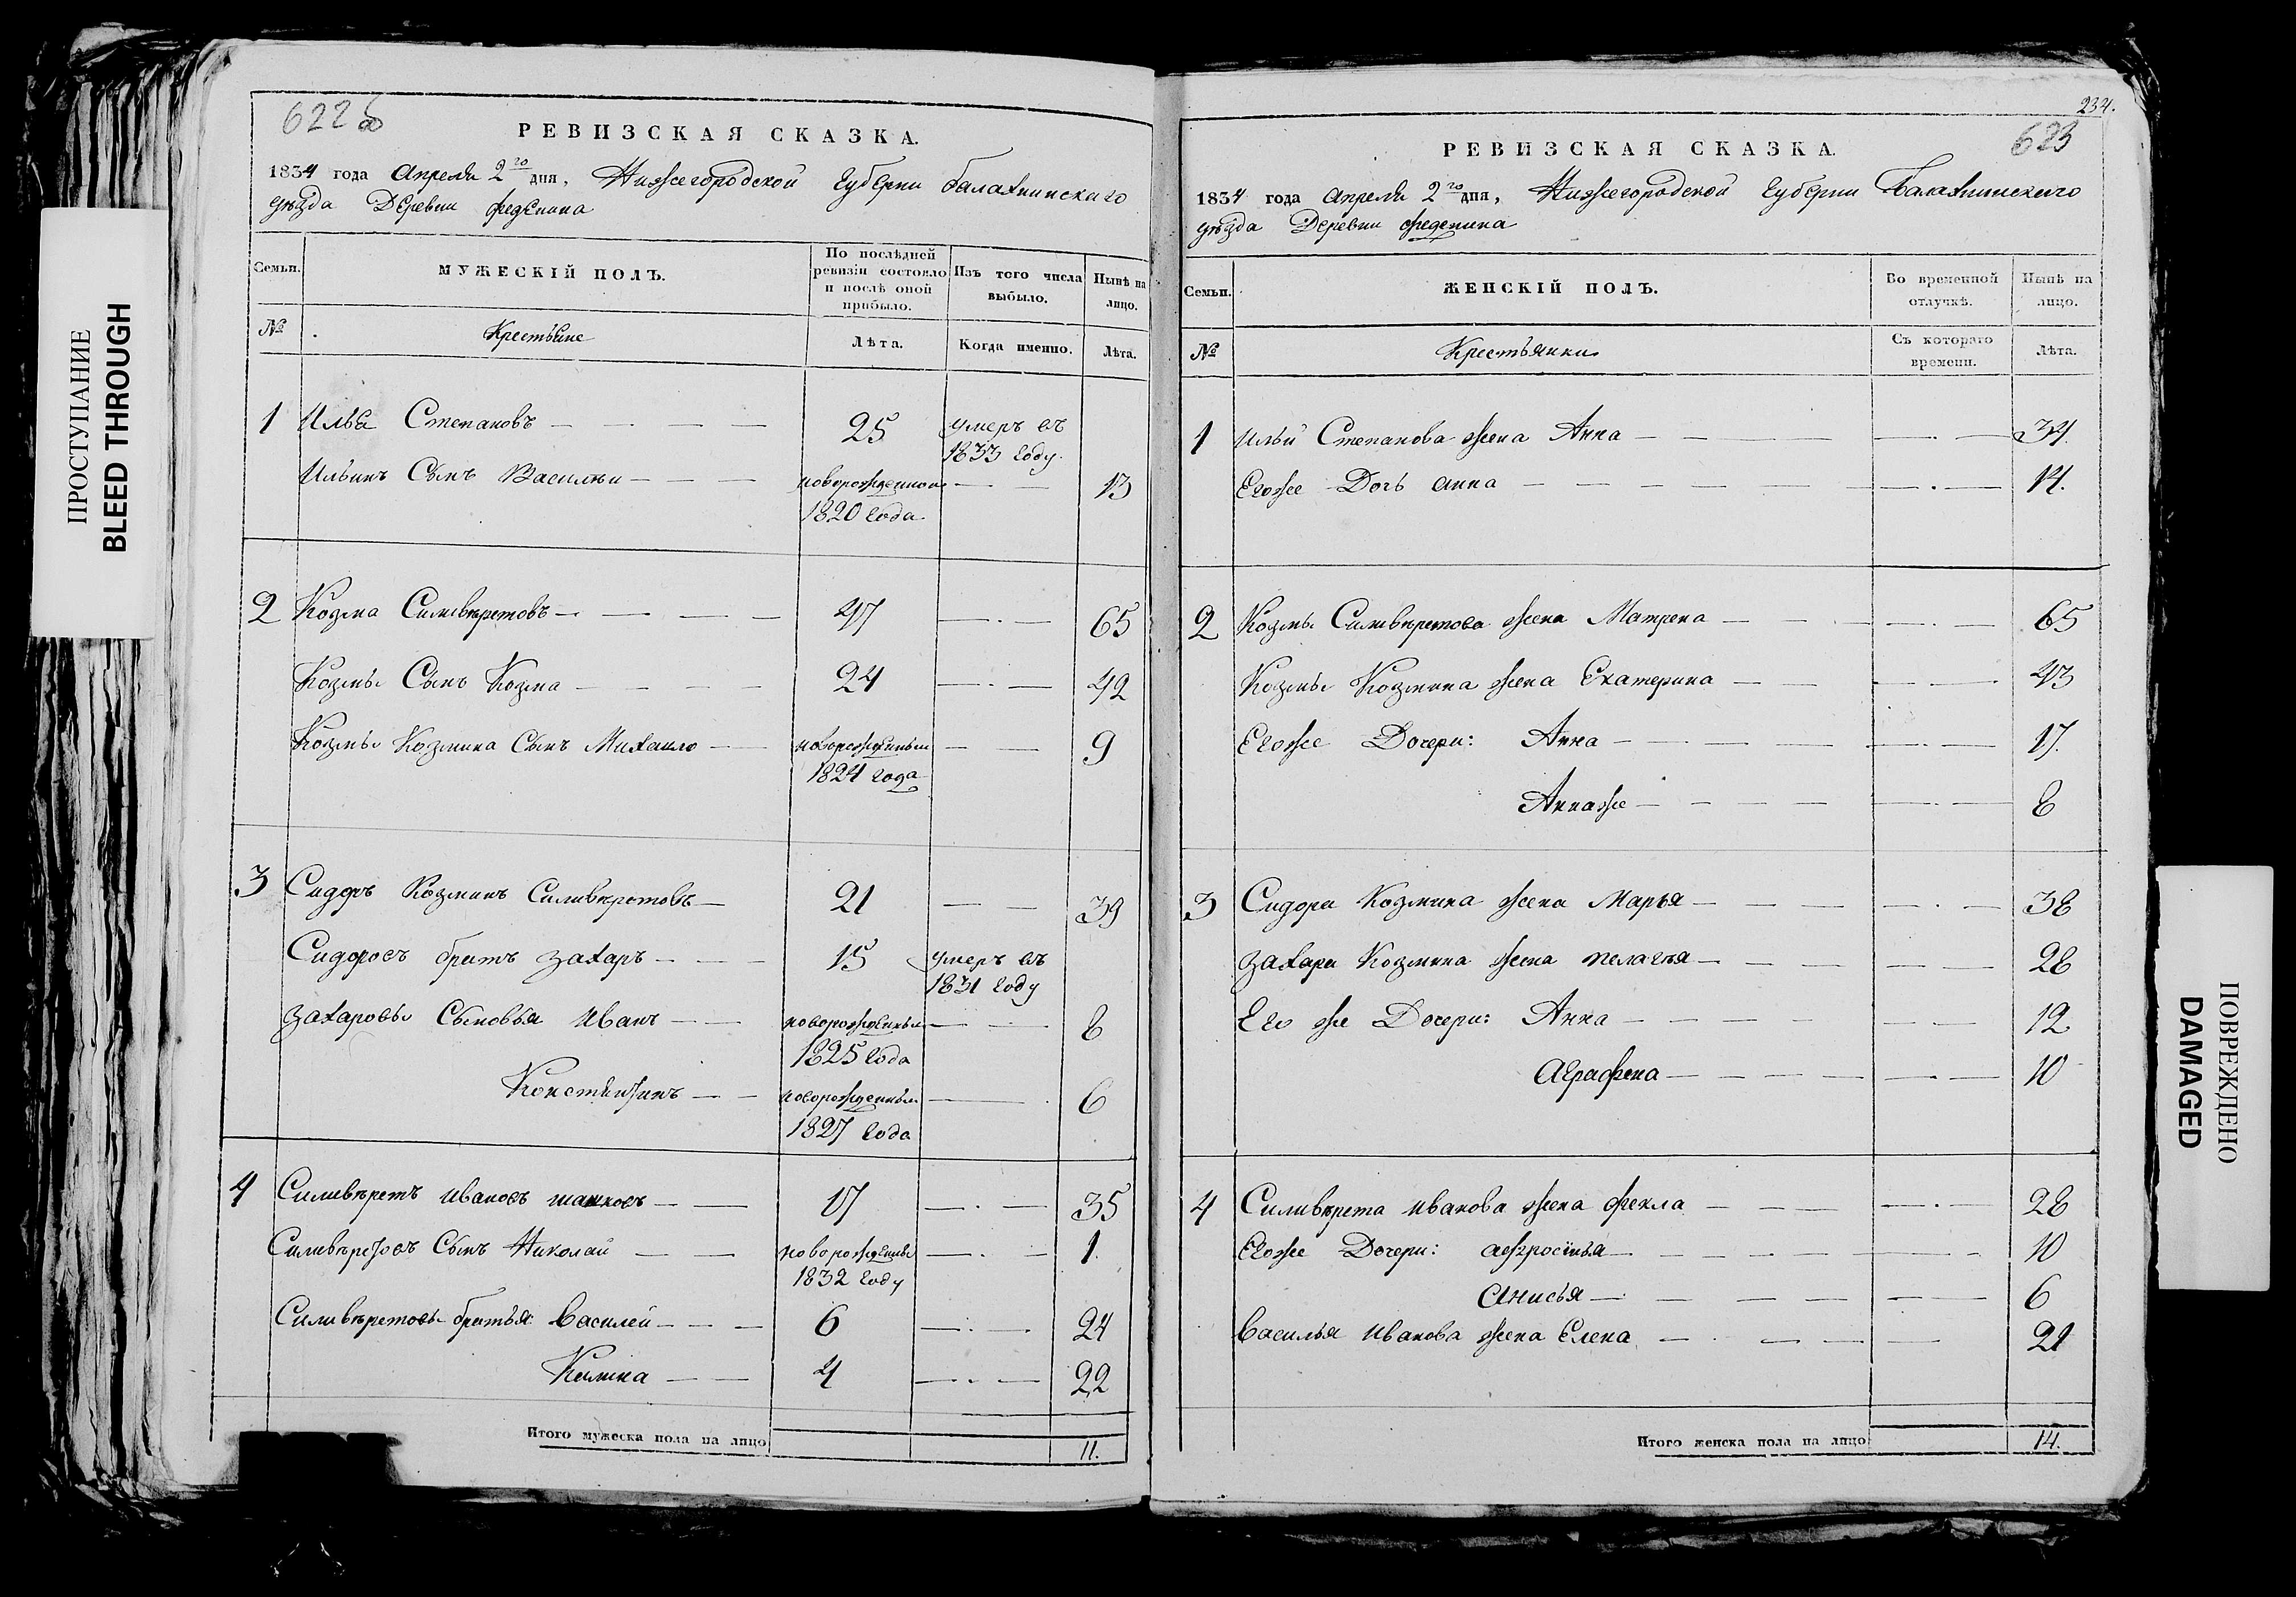 ПРОСТУПАНИЕ
BLEED THROUGH
622 об
РЕВИЗСКАЯ СКАЗКА.
1834 года Апреля 2го дня, Нижегородской Губерни балахнинскаго
уѣзда Деревни федяnина
Семьи.
МУЖЕСКІЙ ПОЛЪ.
По послѣдней ревизіи состояло и послѣ оной прибыло.
Изъ того числа выбыло.
Нынѣ на лицо.
№
Крестьяне
Лѣта.
Когда именно.
Лѣта.
1 Илья Степановъ — 25 умеръ въ 1833 году.
Ильинъ Сынъ Василѣи — новорожденнои 1820 года — 13
2 Козма Силивѣретовъ — 47 — 65
Козмы Сынъ Козма — 24 — 42
Козмы Козмина Сынъ Михаило — новорожденныи 1824 года — 9
3 Сидоръ Козминъ Силивѣретовъ — 21 — 39
Сидоровъ братъ Захаръ — 15 умеръ въ 1831 году
Захаровы Сыновья Иванъ — новорожденныи 1825 года — 8
Констянтинъ — новорожденныи 1827 года — 6
4 Силивѣретъ Ивановъ — 17 — 35
Силивѣретовъ Сынъ Николаи — новорожденны 1832 году — 1.
Силивѣретовы братья Василей — 6 — 24
4 — 22
Итого мужеска пола на лицо 11.
234.
623
РЕВИЗСКАЯ СКАЗКА.
1834 года Апреля 2го дня, Нижегородской Губерни Балахнинскаго
уѣзда Деревни
Семьи.
ЖЕНСКІЙ ПОЛЪ.
Во временной отлучкѣ.
Нынѣ на лицо.
№
Крестьянки
Съ котораго времени.
Лѣта.
1 Ильи Степанова жена Анна — 34.
Егоже Дочь анна — 14.
2 Козмы Силивѣретова жена Матрена — 65
Козмы Козмина жена Екатерина — 43
Егоже Дочери: Анна — 17.
Аннаже — 8
3 Сидора Козмина жена Марья — 38
Захара Козмина жена Пелагѣя — 28
Его же Дочери: Анна — 12
Аграфена — 10
4 Силивѣрета Иванова жена Фекла — 28
Егоже Дочери: — 10
Анисья — 6
Василья Иванова жена Елена — 21
Итого женска пола на лицо 14.
ПОВРЕЖДЕНО
DAMAGED